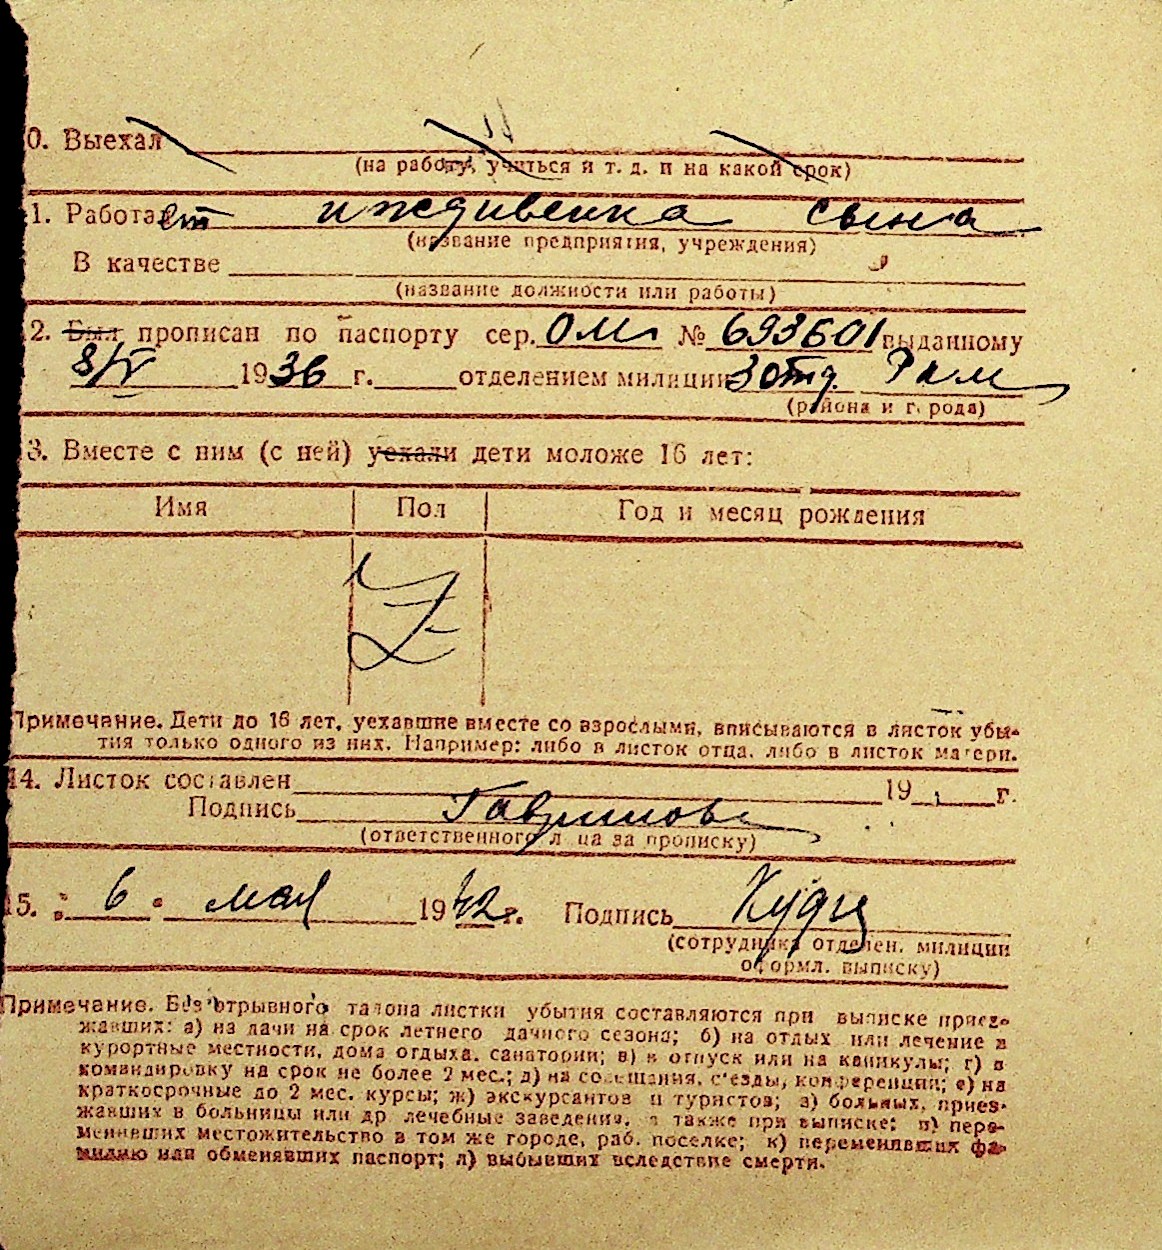 0. Выехал
(на работу, учиться и т. д. и на какой срок)
1. Работает иждивенка сына
(название предприятия, учреждения)
В качестве
(название должности или работы)
2. Был прописан по паспорту сер. ОМ № 693601 выданному
8/V 1936 г. отделением милиции 3 отд. Р км
(района и города)
3. Вместе с ним (с ней) уехали дети моложе 16 лет:
Имя Пол Год и месяц рождения
Z
Примечание. Дети до 16 лет, уехавшие вместе со взрослыми, вписываются в листок убы-
тия только одного из них. Например: либо в листок отца, либо в листок матери.
14. Листок составлен 19 г.
Подпись Гаврилова
(ответственного лица за прописку)
15. „ 6 " мая 1942 г. Подпись
(сотрудника отделен. милиции
оформл. выписку)
Примечание. Без отрывного талона листки убытия составляются при выписке приез-
жавших: а) на дачи на срок летнего дачного сезона; б) на отдых или лечение в
курортные местности, дома отдыха, санатории; в) в отпуск или на каникулы; г) в
командировку на срок не более 2 мес.; д) на совещания, с'езды, конференции; е) на
краткосрочные до 2 мес. курсы; ж) экскурсантов и туристов; з) больных, приез-
жавших в больницы или др лечебные заведения, а также при выписке: и) пере-
менивших местожительство в том же городе, раб. поселке; к) переменивших фа-
милию или обменявших паспорт; л) выбывших вследствие смерти.